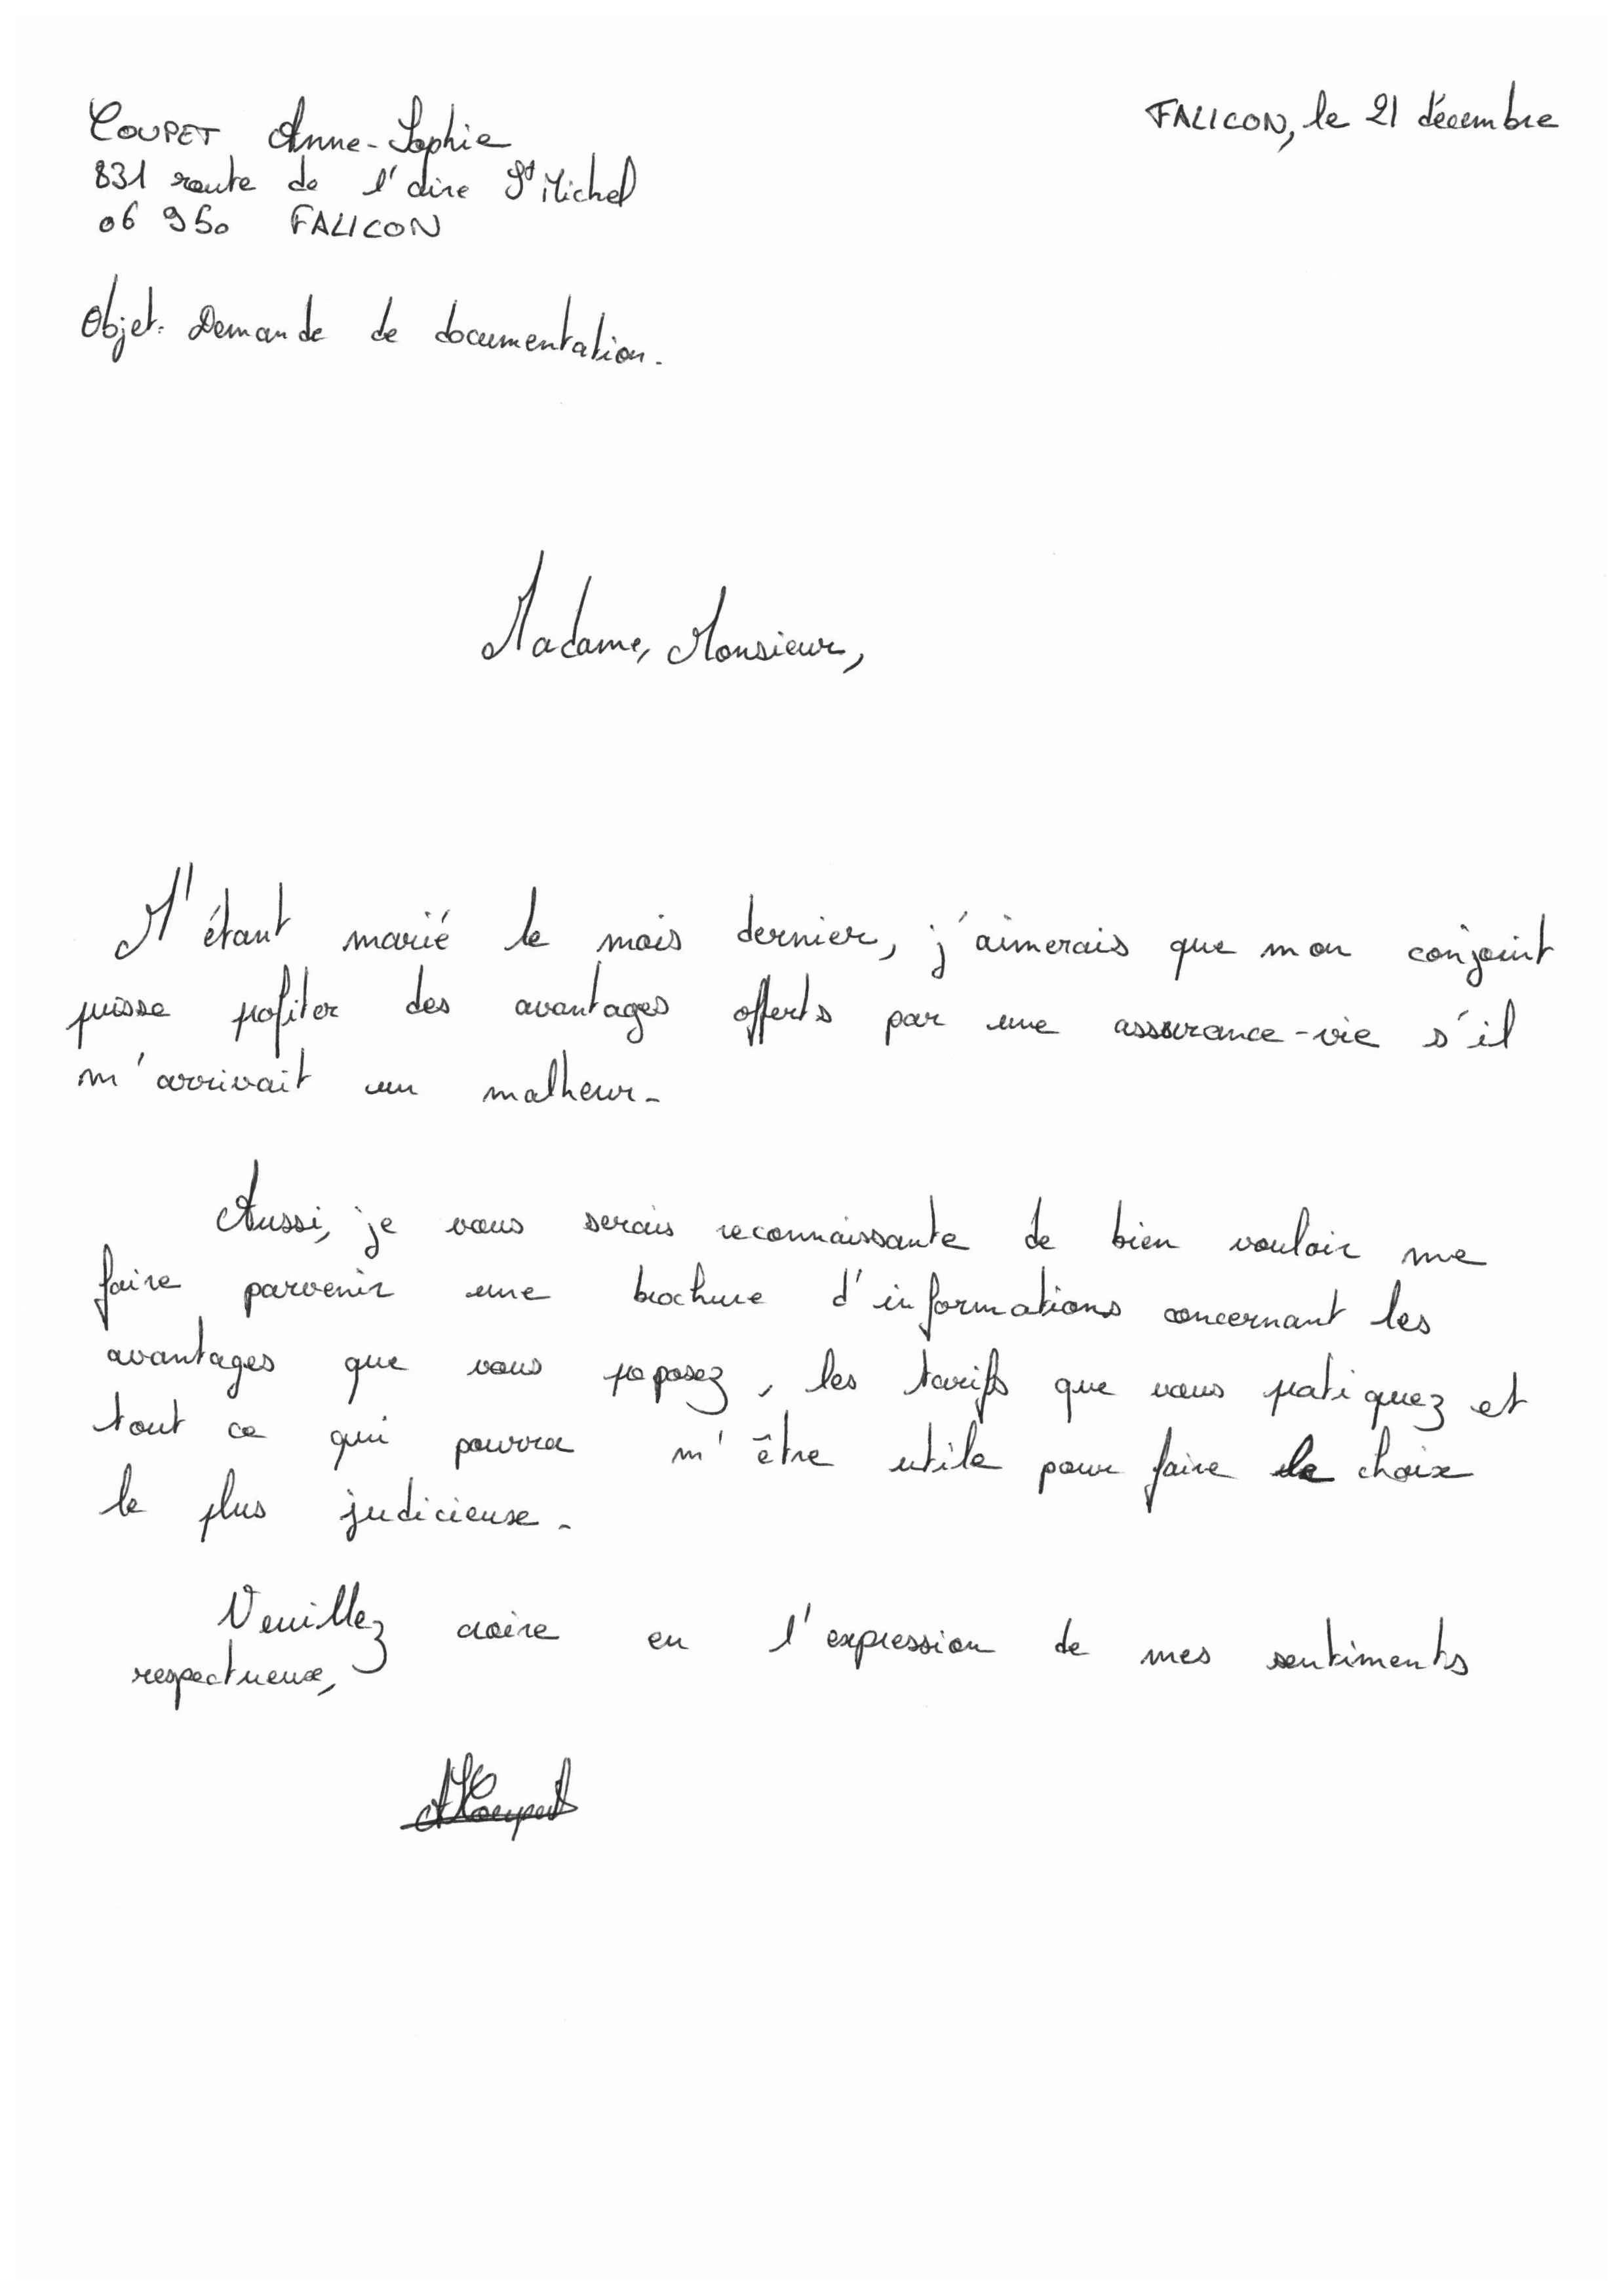 COUPET Anne-Sophie
FALICON, le 21 décembre
831 route de l'aire St Michel
06 950 FALICON
Objet: Demande de documentation.
Madame, Monsieur,
M'étant marié le mois dernier, j'aimerais que mon conjoint
puisse profiter des avantages offerts par une assurance-vie s'il
m'arrivait un malheur.
Aussi, je vous serais reconnaissante de bien vouloir me
faire parvenir une brochure d'informations concernant les
avantages que vous proposez, les tarifs que vous pratiquez et
tout ce qui pourra m'être utile pour faire le choix
le plus judicieuse.
Veuillez croire en l'expression de mes sentiments
respectueux,
ASCoupet